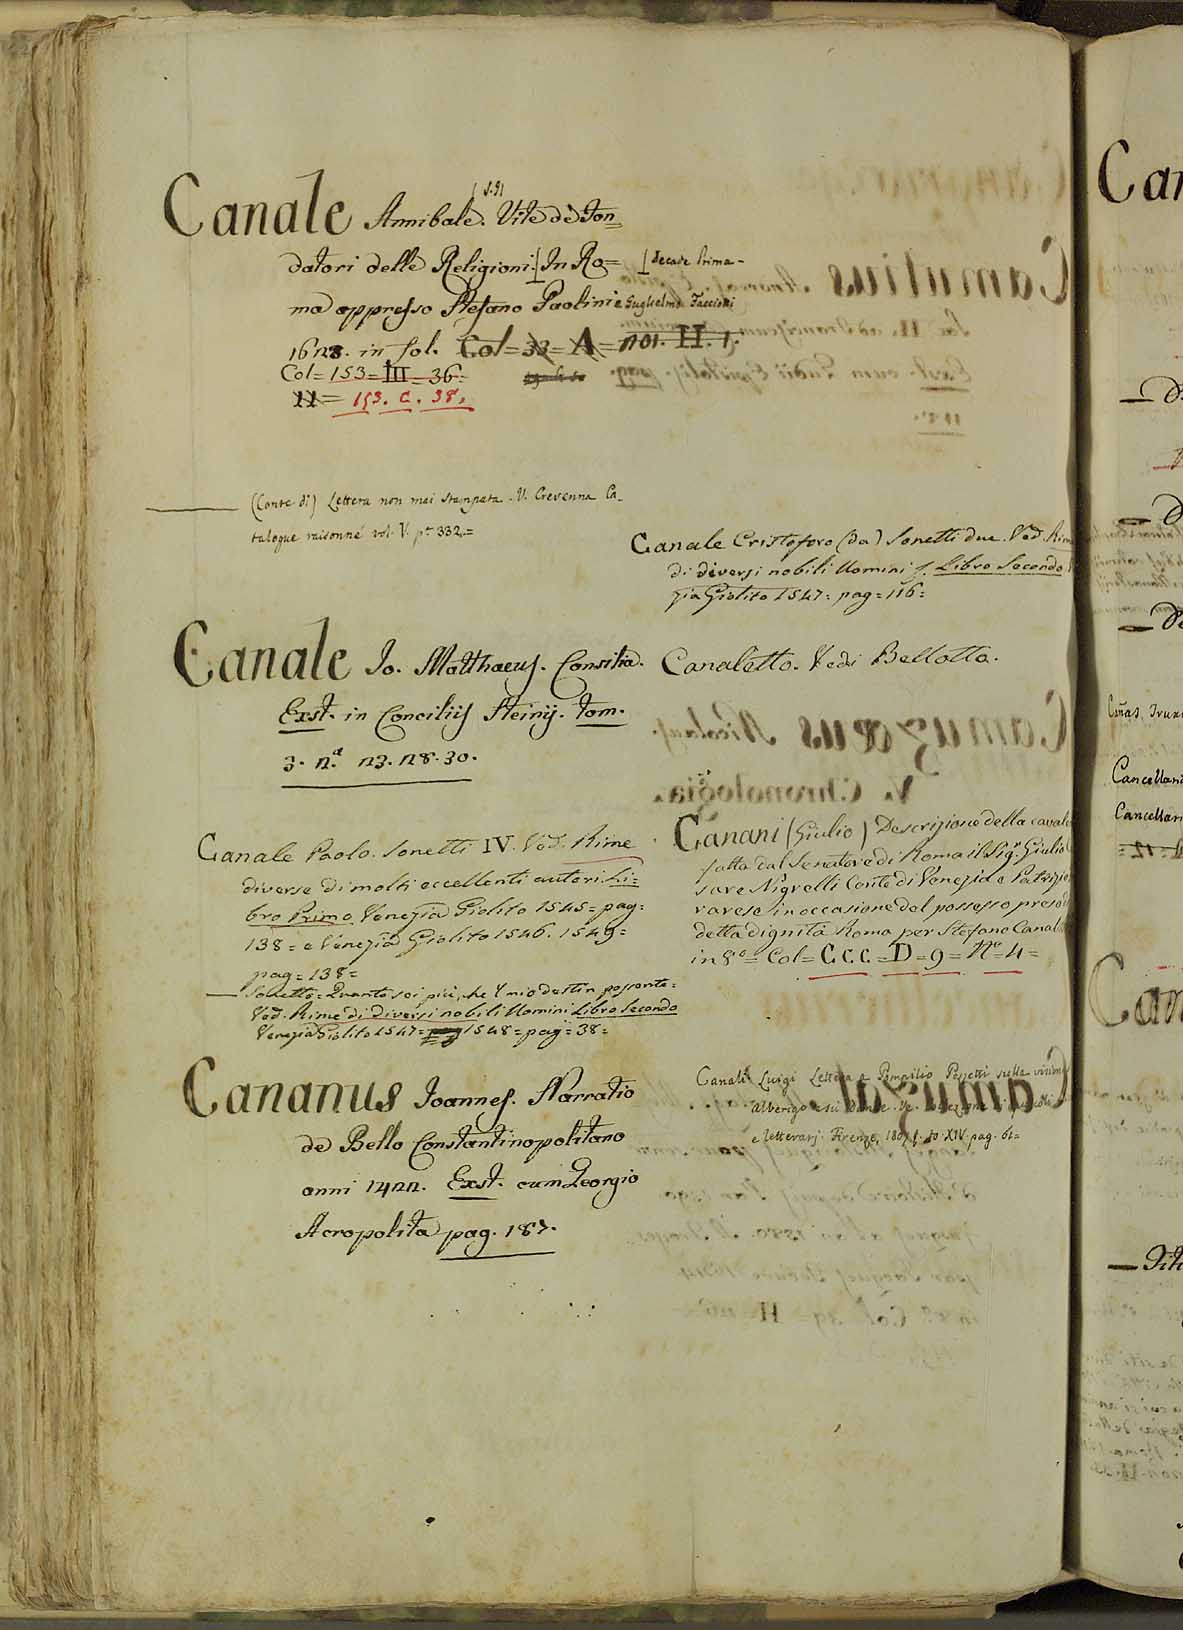 Canale Annibale. Vite de Fon=
datori delle Religioni. In Ro= decade Prima -
ma appresso Stefano Paolini e Guglielmo Facciotti
1623. in fol. Col = 33 = A = 1101. H. 1.
Col = 153 = III = 36 =
= 153. C. 38.
(Conte di) Lettera non mai stampata. V. Crevenna Ca-
talogue raisonné vol. V. p. 332 =
Canale Cristoforo (da) Sonetti due. Ved. Rime
di diversi nobili Uomini Libro Secondo
Giolito 1547 = pag = 116 =
Canale Jo. Matthaeus. Consilia.
Exst. in Conciliis Steinij. tom.
3. n.
Canaletto. Vedi Bellotto.
Canale Paolo. Sonetti IV. Ved. Rime
diverse di molti eccellenti autori Li=
bro Primo Venezia Giolito 1545 = pag =
138 = e Venezia Giolito 1546. 1549 =
pag = 138 =
Sonetto = Quanto sei più, che 'l mio destin possente =
Ved. Rime di diversi nobili Uomini Libro Secondo
Venezia Giolito 1547 = 1548 = pag = 38 =
Canani (Giulio) Descrizione della caval
fatta dal Senatore di Roma il Sigr. Giulio
sare Nigrelli Conte di Venezia e Patrizio
rarese in occasione del possesso preso di
detta dignità Roma per Stefano Canal
in 8° = Col = CCC = D = 9 = N° = 4 =
Cananus Joannes. Narratio
de Bello Constantinopolitano
anni 1422. Exst. cum Georgio
Acropolita pag. 187.
Canali Luigi Lettera a Pompilio Pozzetti sulla
Alberigo
e letterarj. Firenze, 1809 XIV. pag. 61 =
Can
Cancellari
Cancellari
Can